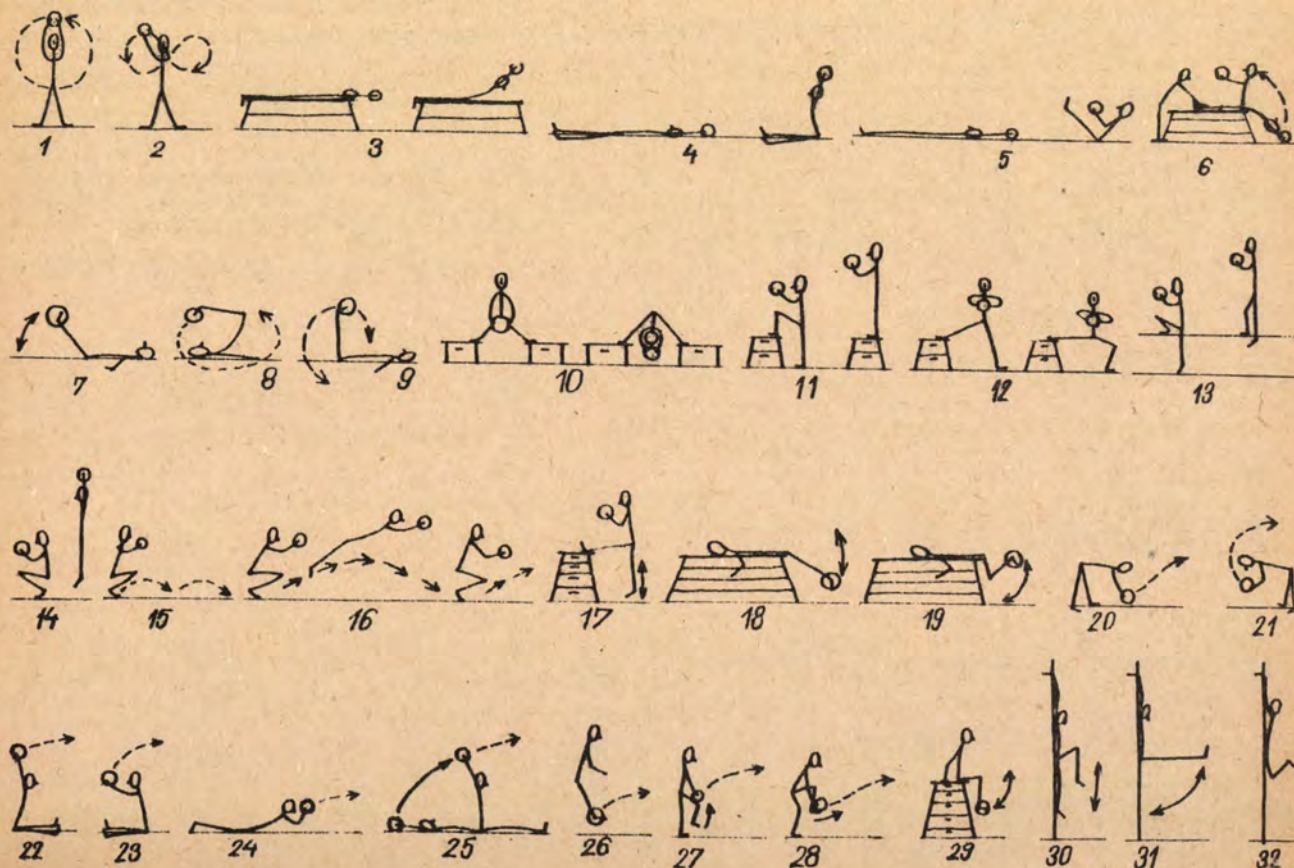 1 2 3 4 5 6
7 8 9 10 11 12 13
14 15 16 17 18 19 20 21
22 23 24 25 26 27 28 29 30 31 32